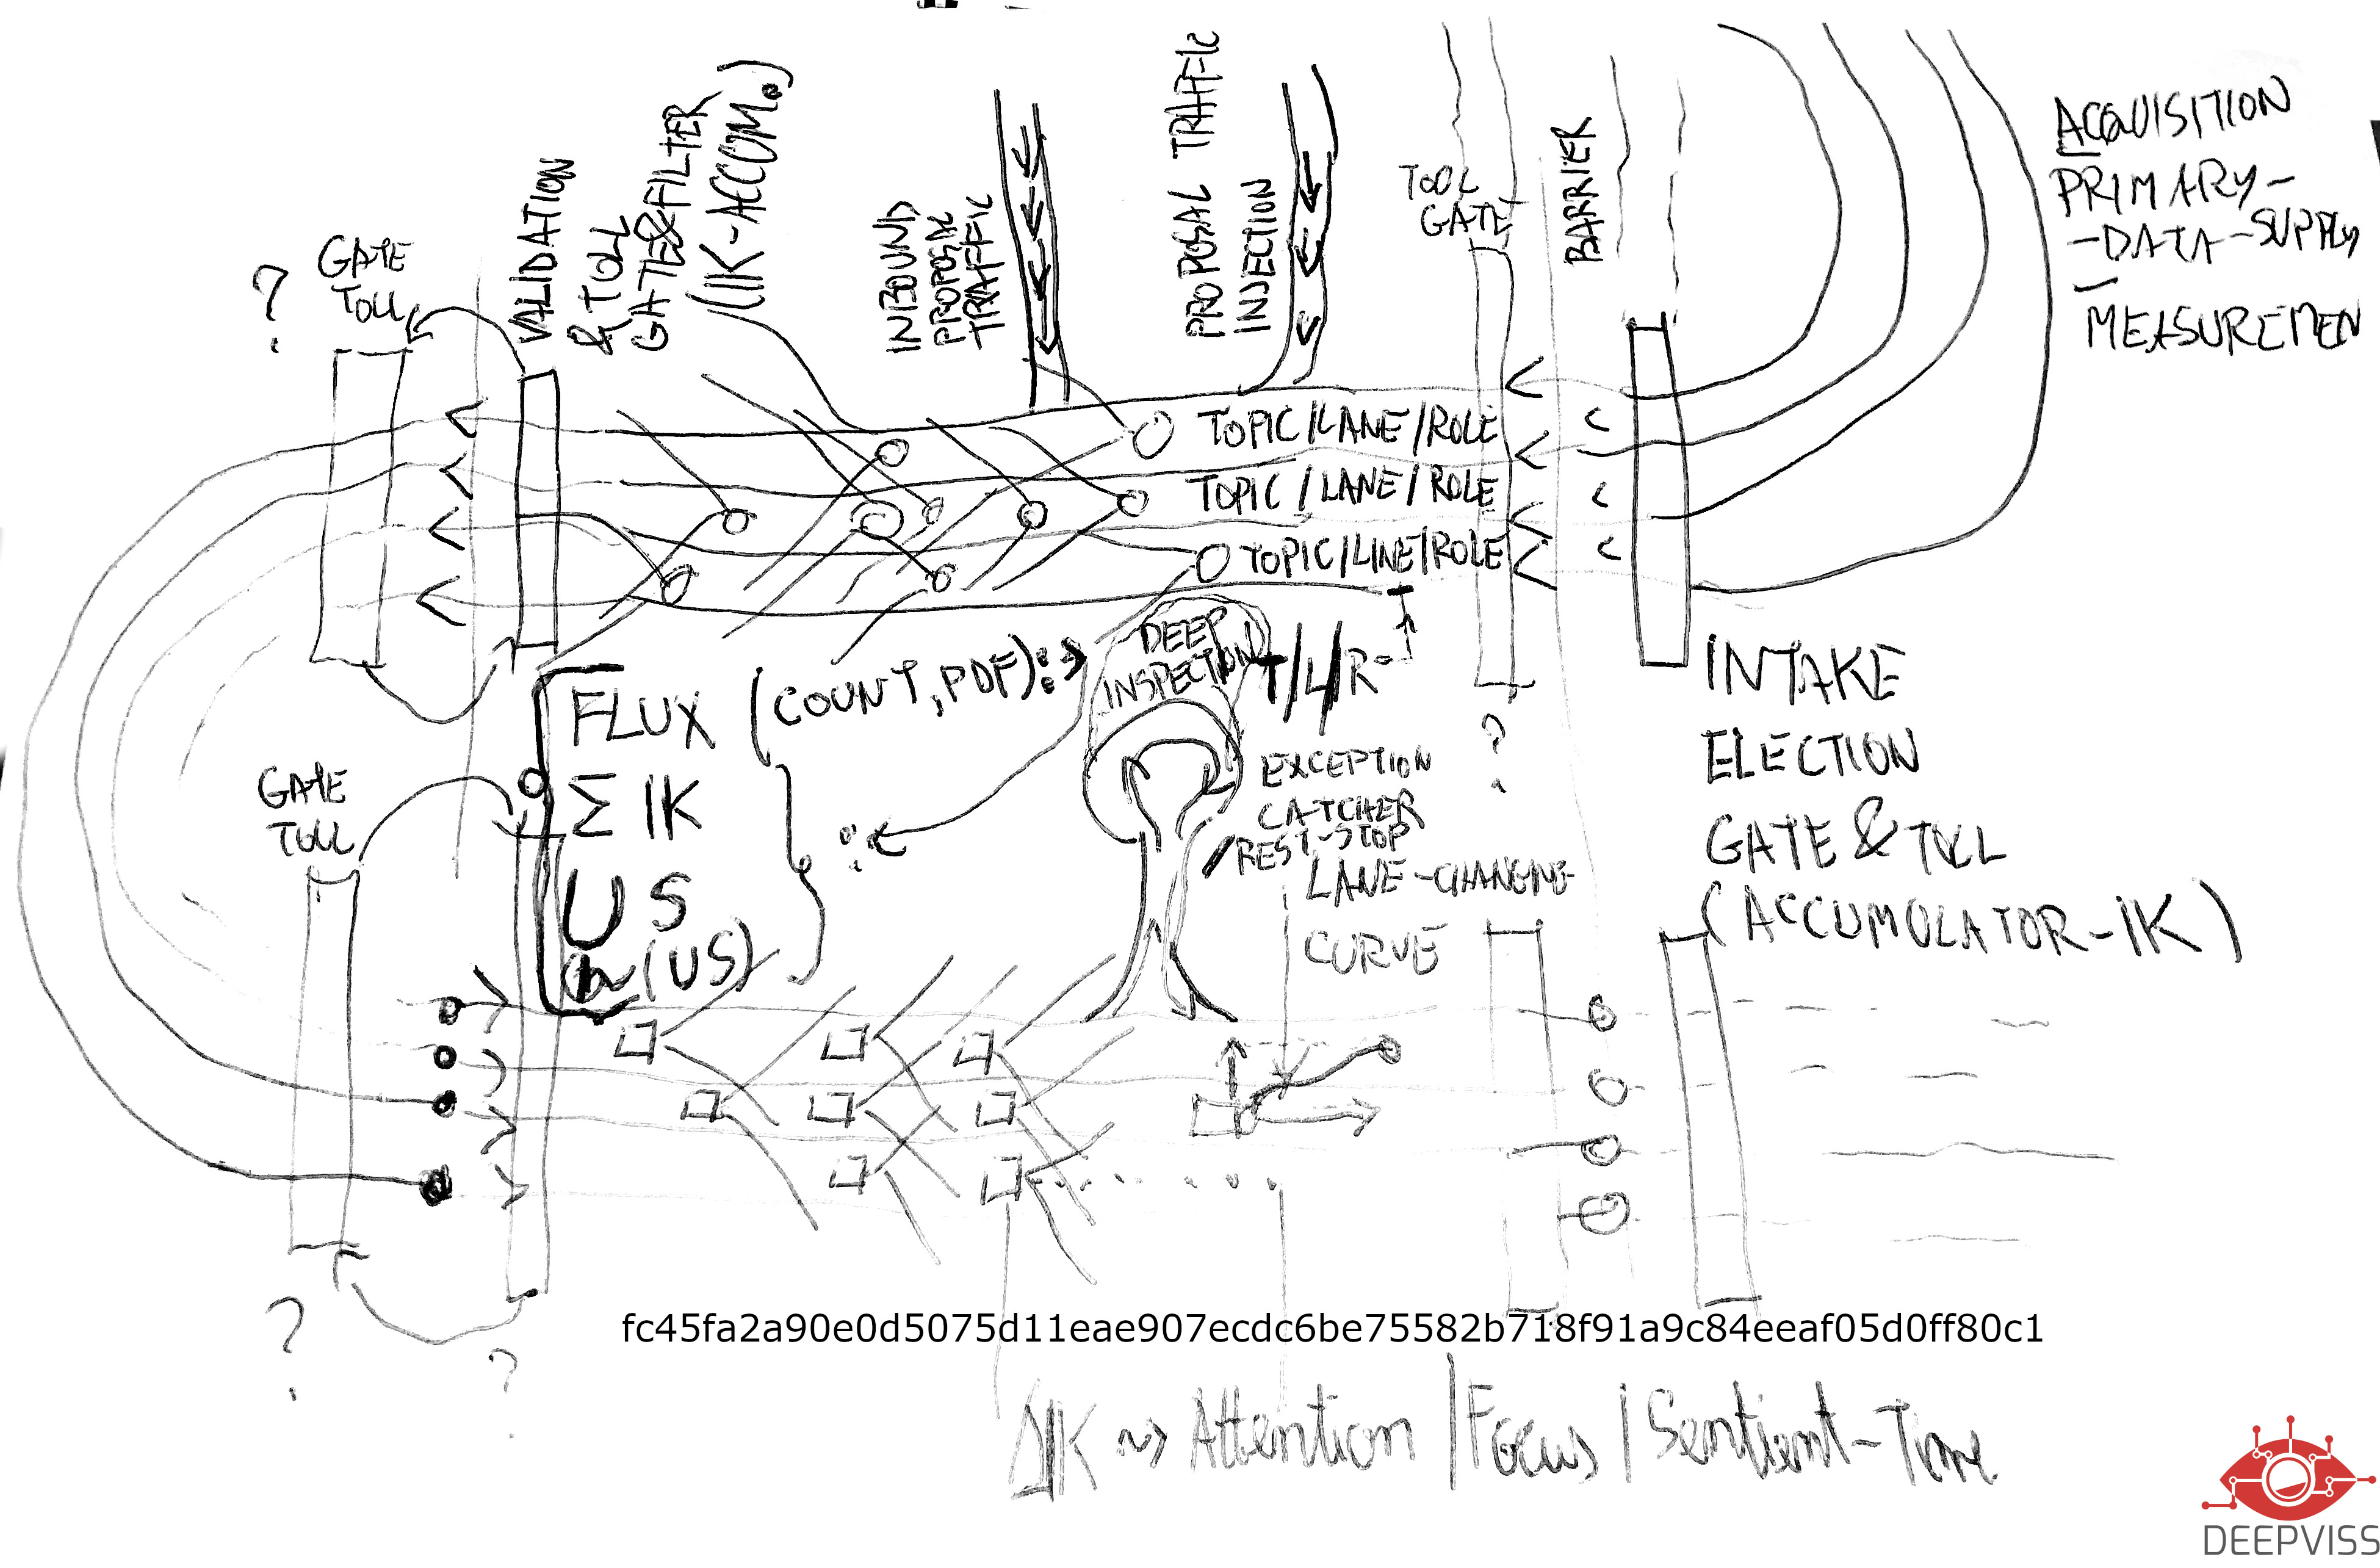 GATE
TOLL
?
VALIDATION
& TOLL
GATE&FILTER
(IK-ACCOM.)
INBOUND
PROPOSAL
TRAFFIC
PROPOSAL TRAFFIC
INJECTION
TOOL
GATE
BARRIER
ACQUISITION
PRIMARY-
-DATA-SUPPLY
-
MEASUREMEN
TOPIC/LANE/ROLE
TOPIC/LANE/ROLE
TOPIC/LINE/ROLE
DEEP
INSPECTION
T/L/R
FLUX (COUNT, PDF):
Σ IK
US
(US)
GATE
TOLL
EXCEPTION
CATCHER
/REST-STOP
LANE-CHANGING
CURVE
?
INTAKE
ELECTION
GATE & TOLL
(ACCUMULATOR-IK)
?
?
fc45fa2a90e0d5075d11eae907ecdc6be75582b718f91a9c84eeaf05d0ff80c1
ΔIK ~> Attention / Focus / Sentient-Time
DEEPVISS